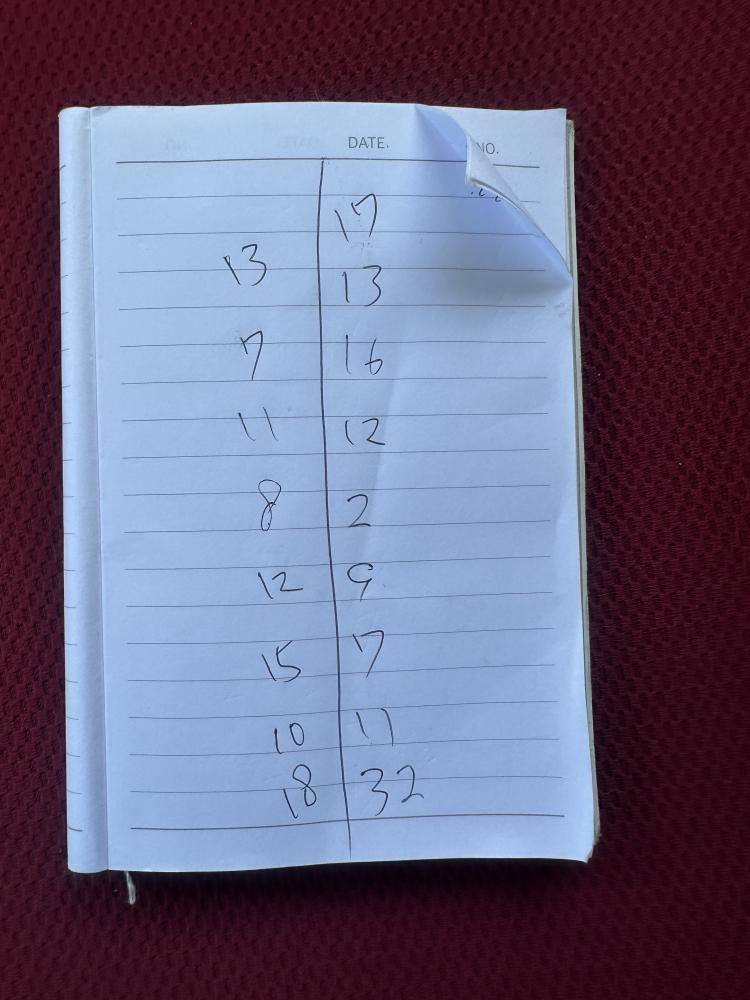 DATE. NO.
17
13 13
7 16
11 12
8 2
12 9
15 7
10 11
18 32